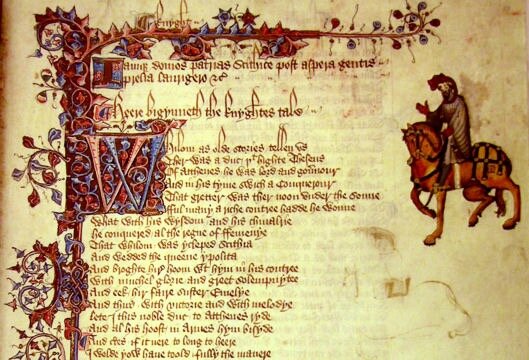 Knyght
Iamque domos patrias Scithice post aspera gentis
prelia laurigero &c
Heere bigynneth the knyghtes tale
Whilom as olde stories tellen us
Ther was a duc þt highte Theseus
Of Atthenes he was lord and gouernour
And in his tyme swich a Conquerour
That gretter was ther noon under the sonne
Fful many a riche contree hadde he wonne
What with his wysdom and his chiualrie
he conquered al the regne of ffemenye
That whilom was ycleped Scithia
And wedded the queene ypolita
And broghte hire hoom wt hym in his contree
With muchel glorie and greet solempnytee
And eek hir faire suster Emelye
And thus with victorie and with melodye
lete I this noble duc to Atthenes ryde
And al his hoost in Armes hym bisyde
And certes if it nere to long to heere
I wolde yow haue toold fully the manere